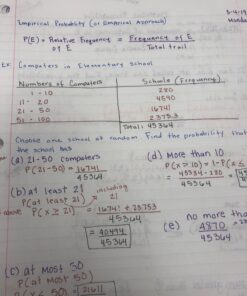 Empirical Probability (or Empirical Approach)
P(E) = Relative Frequency = Frequency of E
of E Total trail
Ex: Computers in Elementary School
Numbers of Computers Schools (Frequency)
1 - 10 280
11 - 20 4590
21 - 50 16741
51 - 100 23753
Total: 45364
Choose one school at random Find the probability that
the school has
(a) 21-50 computers
P(21-50) = 16741
45364
(b) at least 21
P(at least 21) including 21
above P(X ≥ 21) = 16741 + 23753
45364
= 40494
45364
(c) at most 50
P(at most 50)
= 21611
(d) More than 10
P(X > 10) = 1 - P(X ≤
= 45364 - 280
45364
(e) no more tha
4870
45364